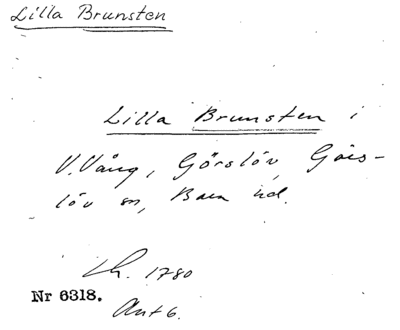 Lilla Brunsten
Lilla Brunsten i
V. Vång, Görslöv, Görs-
löv sn, Bara hd.
Lh. 1780
Nr 6318.
Akt 6.